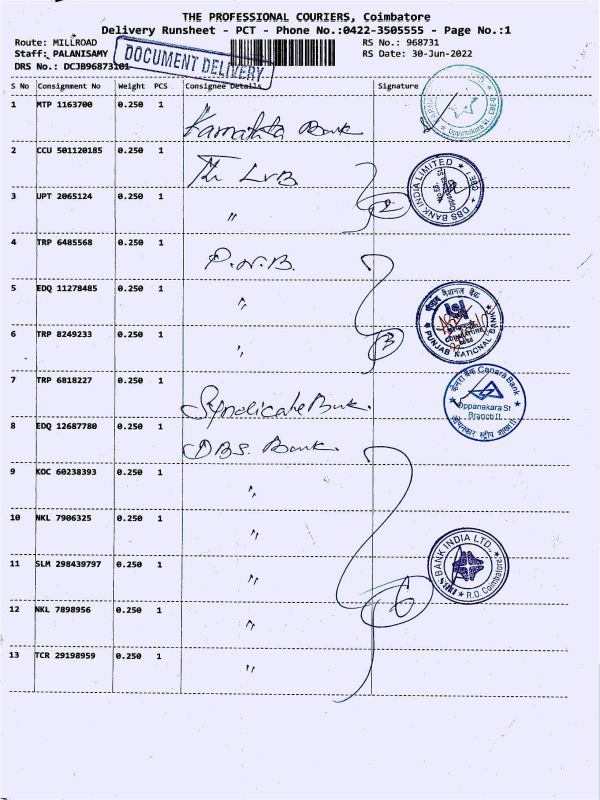 THE PROFESSIONAL COURIERS, Coimbatore
Delivery Runsheet - PCT - Phone No.:0422-3505555 - Page No.:1
Route: MILLROAD RS No.: 968731
Staff: PALANISAMY RS Date: 30-Jun-2022
DRS No.: DCJB96873101
DOCUMENT DELIVERY
S No Consignment No Weight PCS Consignee Details Signature
1 MTP 1163700 0.250 1 Karnataka Bank
Oppanakara St.
2 CCU 501120185 0.250 1 The LVB
DBS BANK INDIA LIMITED
3 UPT 2065124 0.250 1 " 2
4 TRP 6485568 0.250 1 P.N.B.
5 EDQ 11278485 0.250 1 "
पंजाब नैशनल बैंक
PUNJAB NATIONAL BANK
COIMBATORE
6 TRP 8249233 0.250 1 " 3
7 TRP 6818227 0.250 1 Syndicate Bank.
केनरा बैंक Canara Bank
Oppanakara St
Branch II
8 EDQ 12687780 0.250 1 DBS. Bank.
9 KOC 60238393 0.250 1 "
10 NKL 7906325 0.250 1 "
BANK INDIA LTD.
R.O. Coimbatore
11 SLM 298439797 0.250 1 "
12 NKL 7898956 0.250 1 " 6
13 TCR 29198959 0.250 1 "